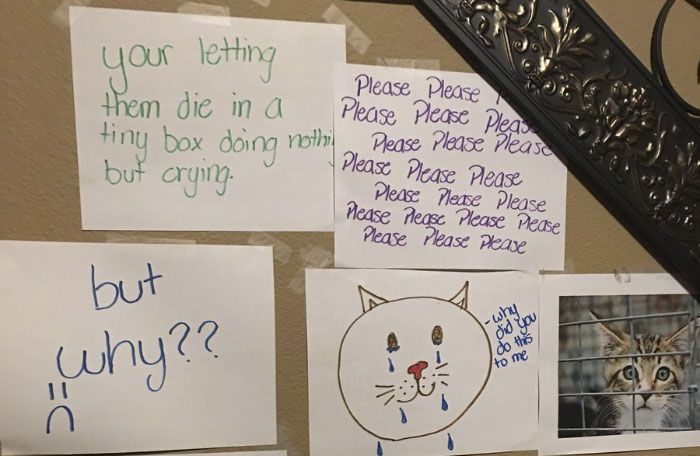 your letting
them die in a
tiny box doing nothi
but crying.
Please Please
Please Please Please
Please Please Please
Please Please Please
Please Please Please
Please Please Please Please
Please Please Please
but
why??
-why
did you
do this
to me